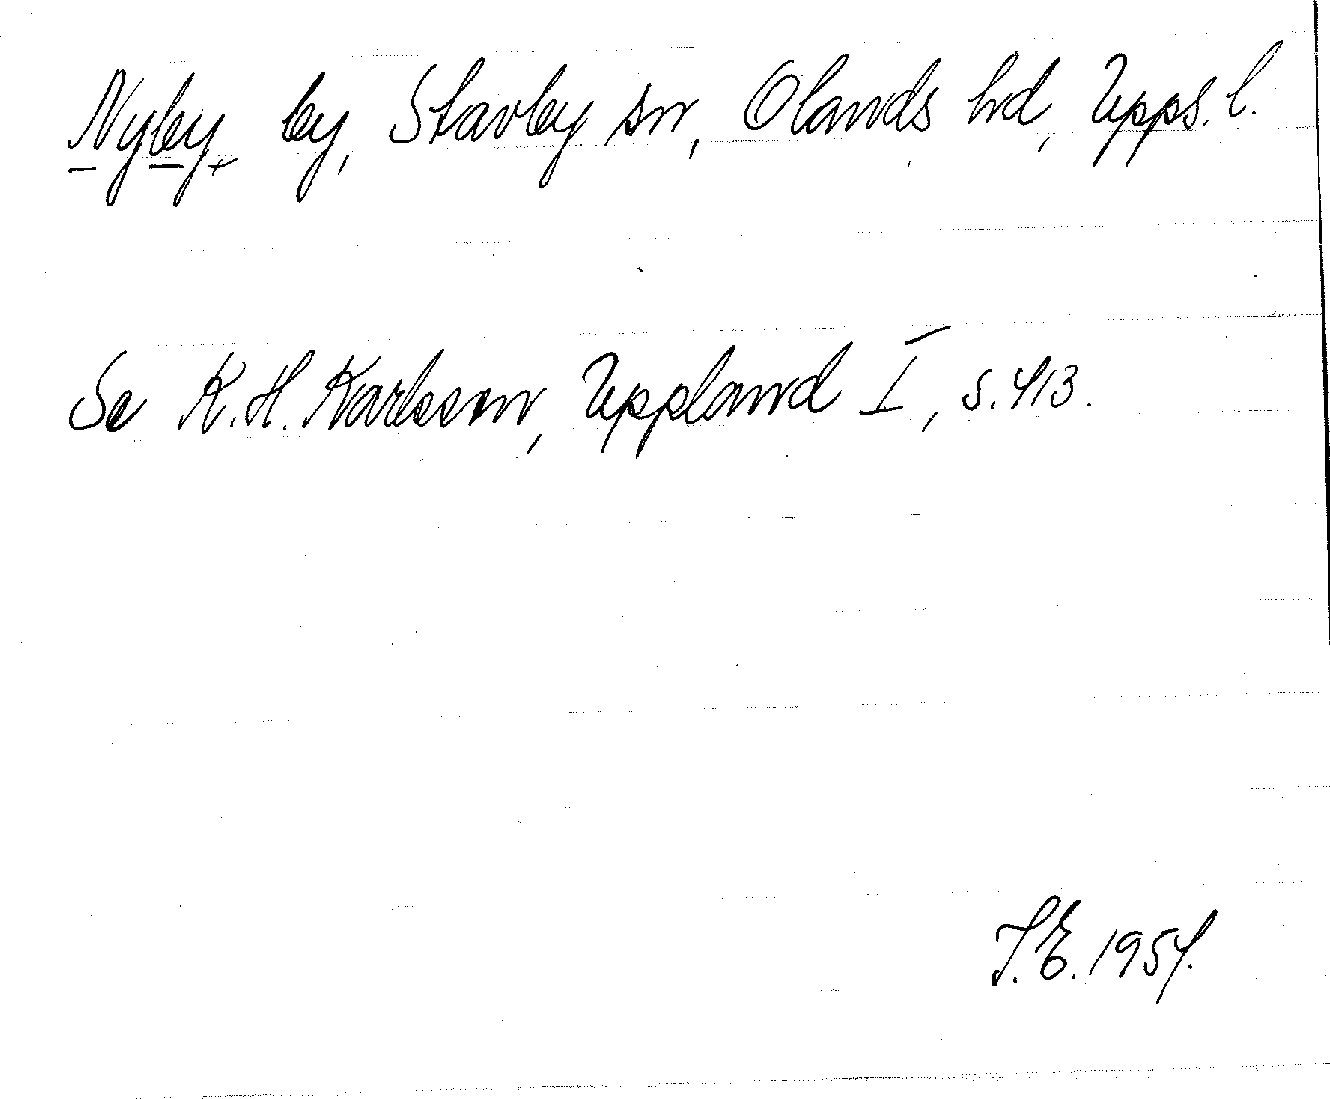 Nyby, by, Stavby sn, Olands hd, Upps. l.
Se K.H. Karlsson, Uppland I, s. 413.
I.E. 1954.